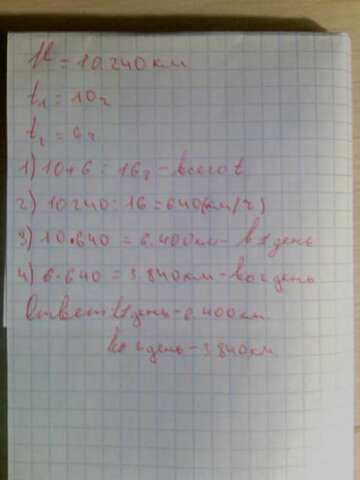 = 10.240 км
t₁ = 10ч
t₂ = 6ч
1) 10+6 = 16ч - всего t
2) 10240 : 16 = 640(км/ч)
3) 10•640 = 6.400км - в 1 день
4) 6•640 = 3.840км - во 2 день
Ответ: 1 день - 6.400км
во 2 день - 3.840км